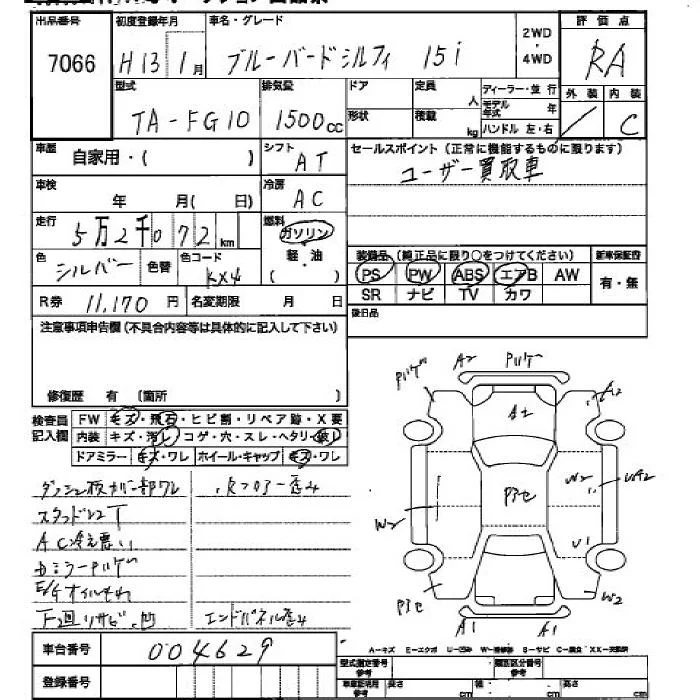 出品番号 初度登録年月 車名・グレード 2WD・4WD 評価点
7066 H13 1月 ブルーバードシルフィ 15i RA
型式 排気量 ドア 定員 人 ディーラー・並行 外装 内装
TA-FG10 1500cc 形状 積載 kg モデル年式 年 ハンドル 左・右 / C
車歴 自家用・( ) シフト AT セールスポイント(正常に機能するものに限ります)
ユーザー買取車
車検 年 月( 日) 冷房 AC
走行 5万2千072km 燃料 ガソリン
軽・油
( )
色 シルバー 色替 色コード KX4
装備品(純正品に限り○をつけてください) 新車保証書
PS PW ABS エアB AW 有・無
SR ナビ TV カワ
R券 11,170円 名変期限 月 日
後日品
注意事項申告欄(不具合内容等は具体的に記入して下さい)
修復歴 有 〔箇所 〕
検査員記入欄 FW キズ・飛石・ヒビ割・リペア跡・X要
内装 キズ・汚レ コゲ・穴・スレ・ヘタリ・破レ
ドアミラー キズ・ワレ ホイール・キャップ キズ・ワレ
スタッドレスT
AC冷え悪い
E/Gオイルもれ
下回リサビ、凹
エンドパネル歪み
A2 バンパーキズ
A2
W2
W2
U1
W2
A1 A1
車台番号 004629
登録番号
A-キズ E-エクボ U-凹み W-補修跡 S-サビ C-腐食 XX-交換済
型式指定番号 類別区分番号
車庫証明用 長さ cm 幅 cm 高さ cm